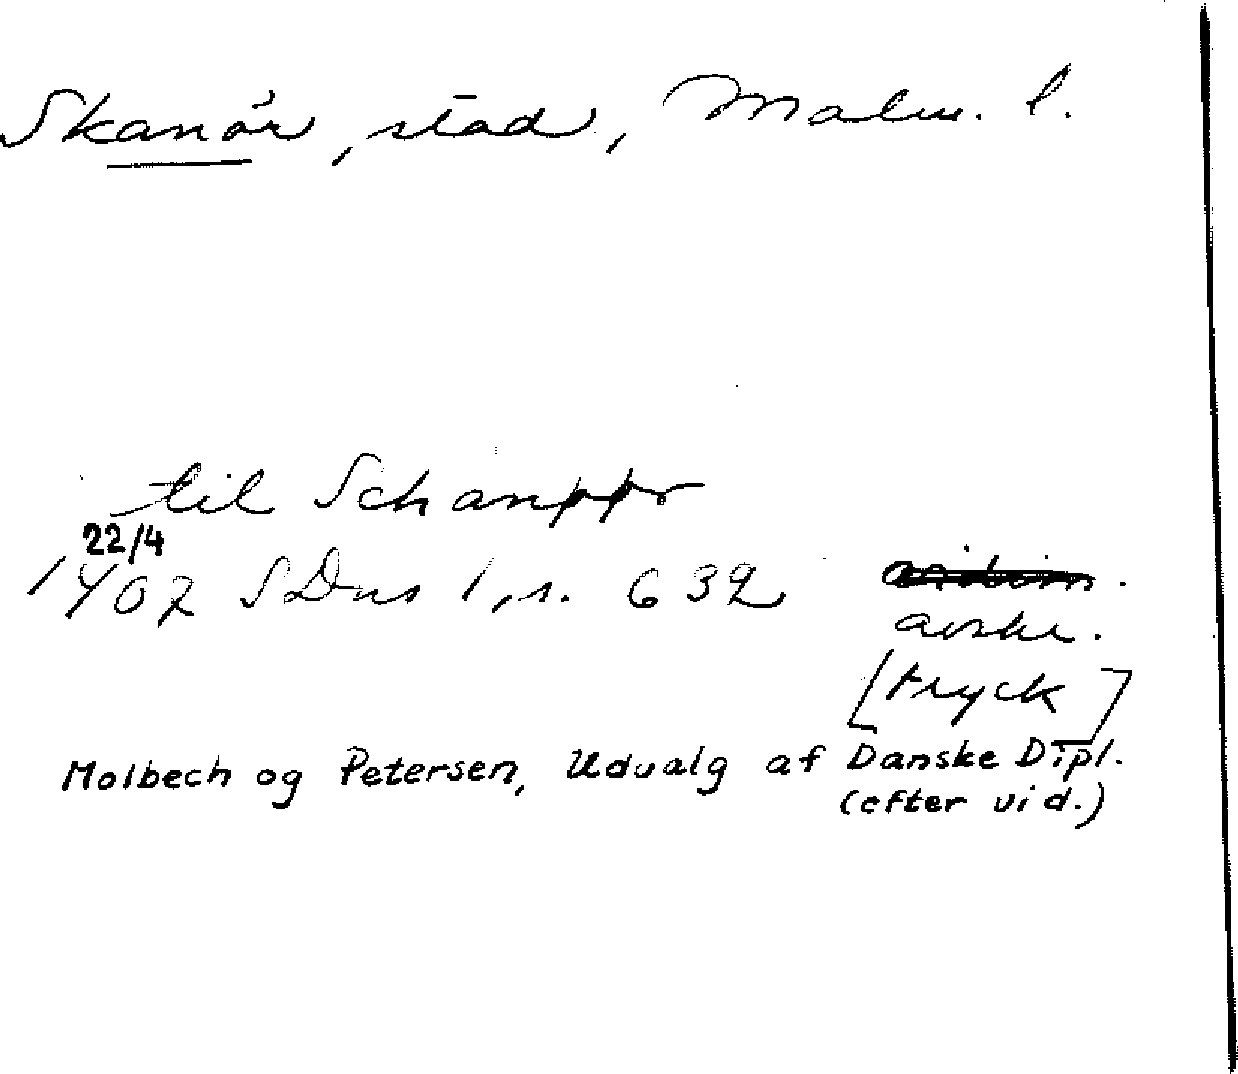 Skanör, stad, Malm. l.
til Schanøør
22/4
1407 SDns 1, s. 632
avskr.
[tryck]
Molbech og Petersen, Udvalg af Danske Dipl.
(efter vid.)